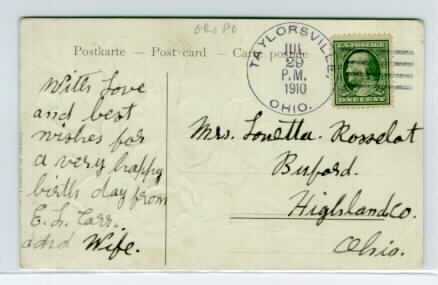 ORG PO
Postkarte — Post card — Carte postale
TAYLORSVILLE,
JUL
29
P.M.
1910
OHIO.
ONE CENT
With Love
and best
wishes for
a very happy
birth day from
E. L. Carr.
and Wife.
Mrs. Lonetta Rosselot
Buford.
Highland Co.
Ohio.